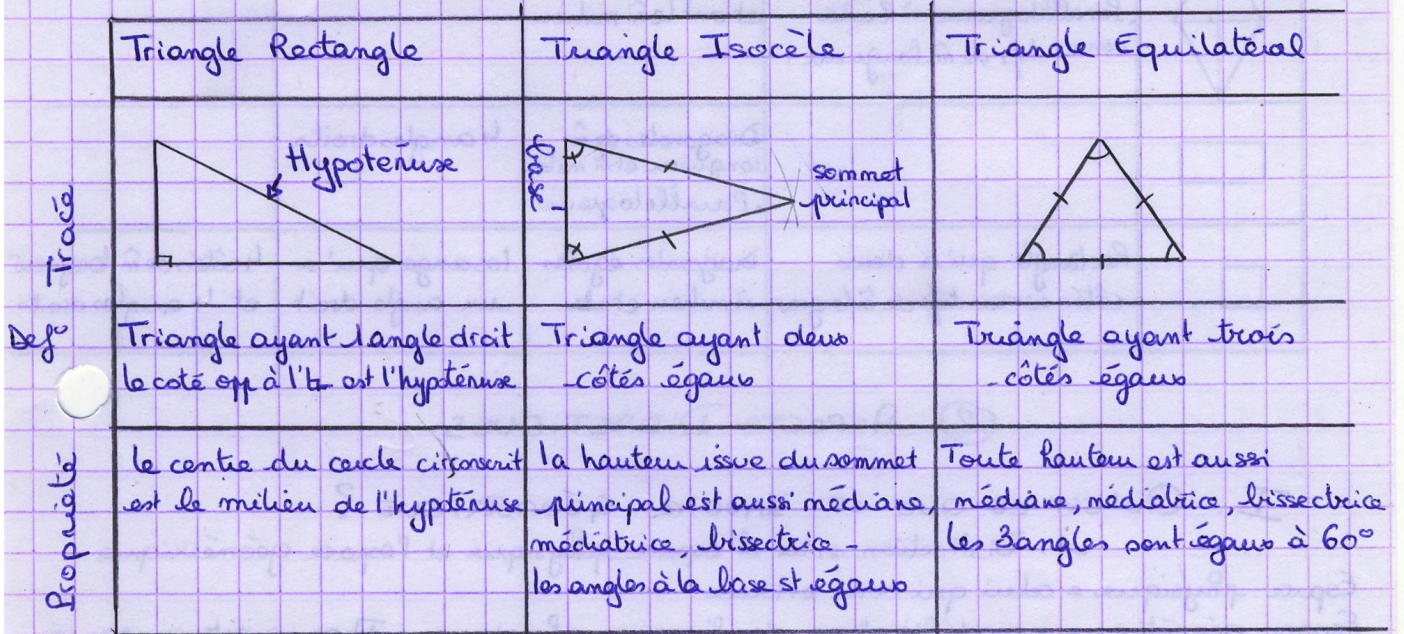 Triangle Rectangle
Triangle Isocèle
Triangle Equilatéral
Tracé
Hypoténuse
base
sommet
principal
Defº
Triangle ayant 1 angle droit
le coté opp à l'⊾ est l'hypoténuse
Triangle ayant deux
côtés égaux
Triangle ayant trois
côtés égaux
Propriété
le centre du cercle circonscrit
est le milieu de l'hypoténuse
la hauteur issue du sommet
principal est aussi médiane,
médiatrice, bissectrice -
les angles à la base st égaux
Toute hauteur est aussi
médiane, médiatrice, bissectrice
les 3 angles sont égaux à 60°